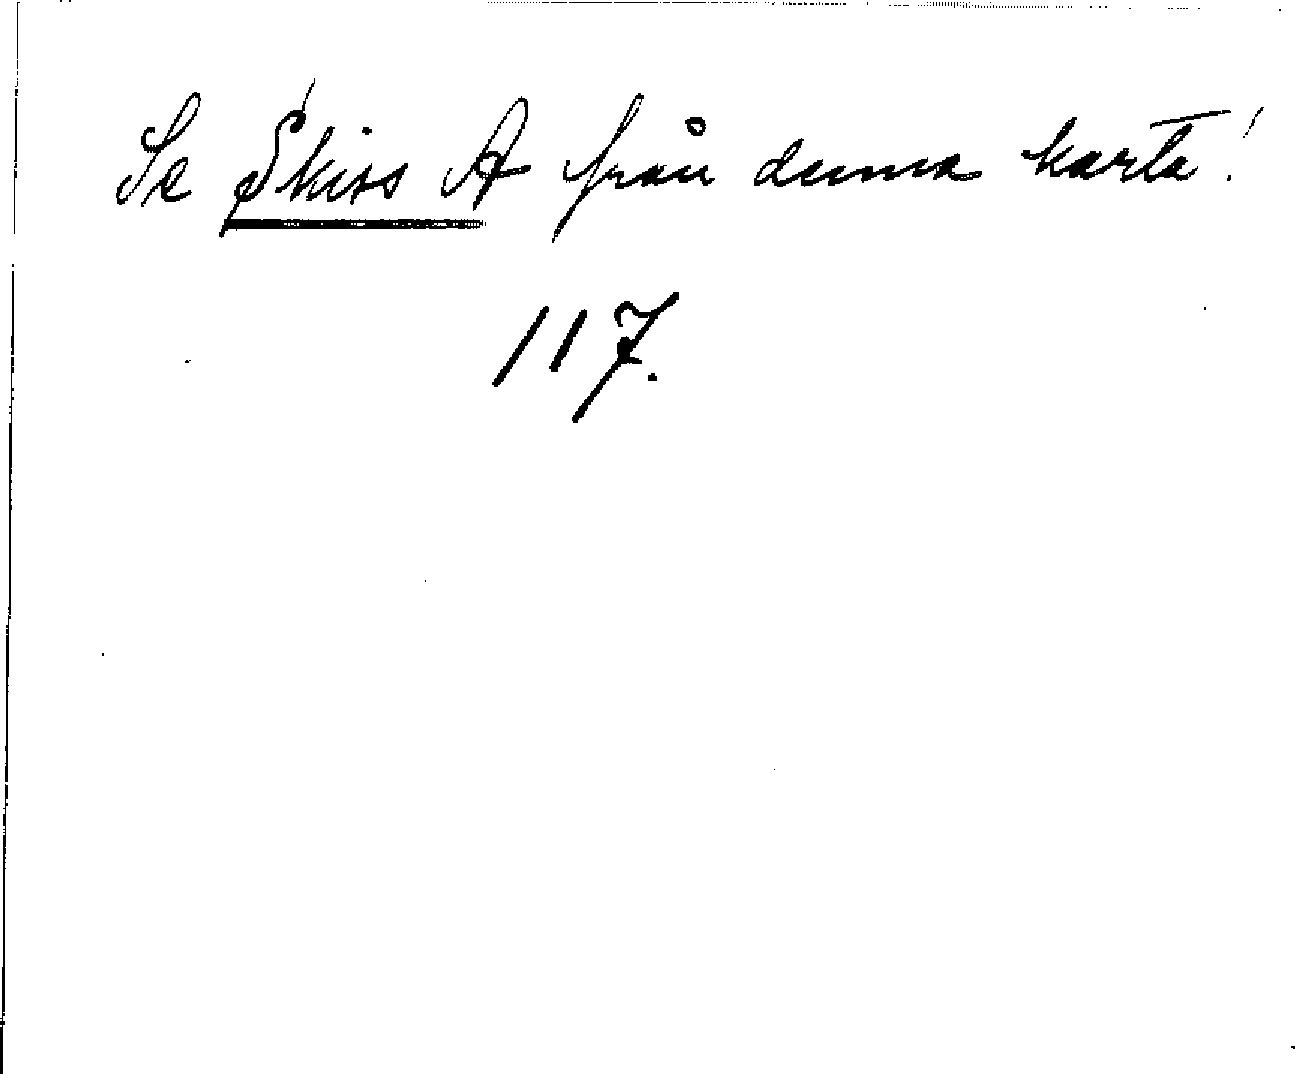 Se Skiss A från denna karta!
117.